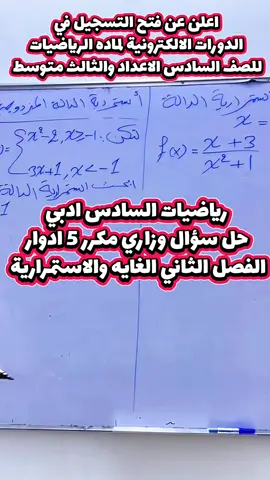 اعلن عن فتح التسجيل في
الدورات الالكترونية لماده الرياضيات
للصف السادس الاعداد والثالث متوسط
استمرارية الدالة
x =
f(x) = x + 3 / x² + 1
أستمرارية الدالة المزدوجة
لتكن
x²-2, x≥-1
3x+1, x<-1
ابحث استمرارية الدالة
رياضيات السادس ادبي
حل سؤال وزاري مكرر 5 ادوار
الفصل الثاني الغايه والاستمرارية